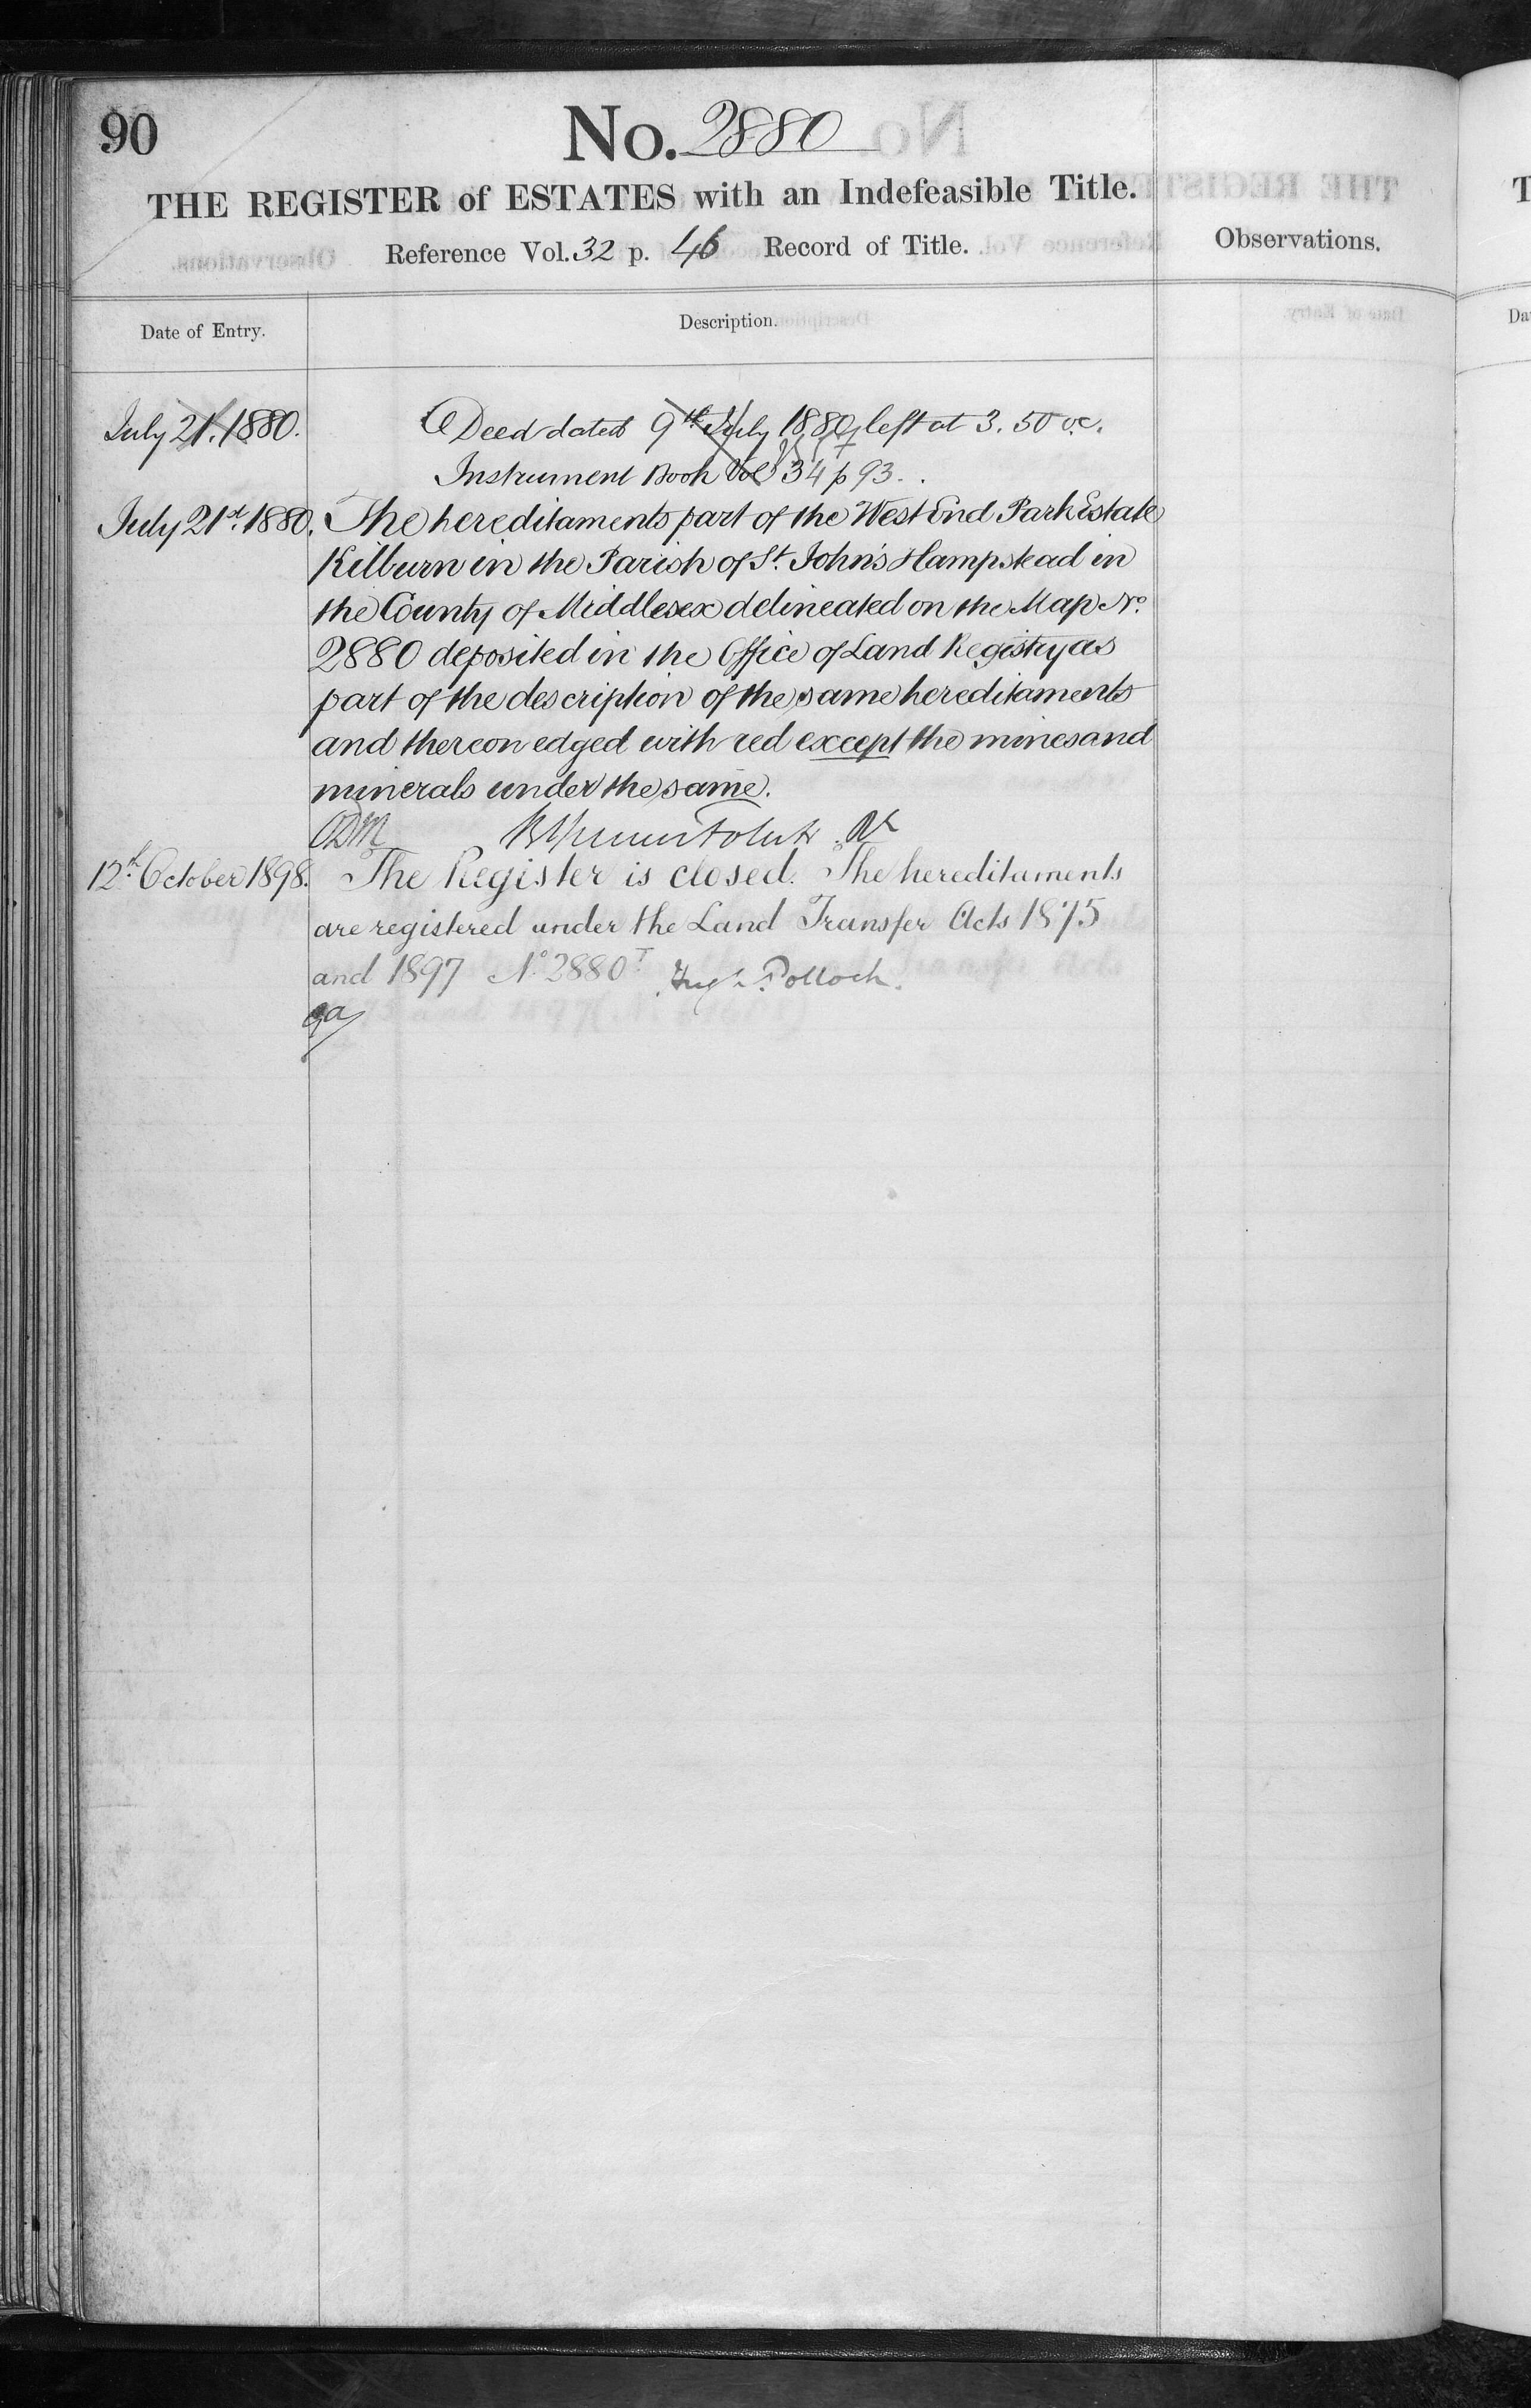 90
No. 2880
THE REGISTER of ESTATES with an Indefeasible Title.
Reference Vol. 32 p. 46 Record of Title.
Observations.
Date of Entry.
Description.
July 21. 1880.
Deed dated 9th July 1880 left at 3.50 o.c.
Instrument Book Vol 34 p 93.
July 21st. 1880. The hereditaments part of the West End Park Estate
Kilburn in the Parish of St. John's Hampstead in
the County of Middlesex delineated on the Map No.
2880 deposited in the Office of Land Registry as
part of the description of the same hereditaments
and thereon edged with red except the mines and
minerals under the same.
12th October 1898. The Register is closed. The hereditaments
are registered under the Land Transfer Acts 1875
and 1897 No. 2880T. Hugh Pollock.